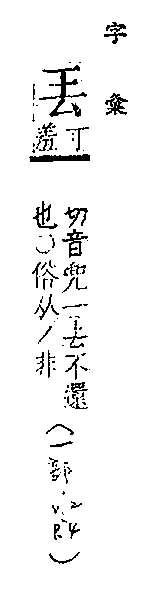 字彙
丟
可
羞
切音兜一去不還
也○俗从丿非(一部.V.2 P.4)